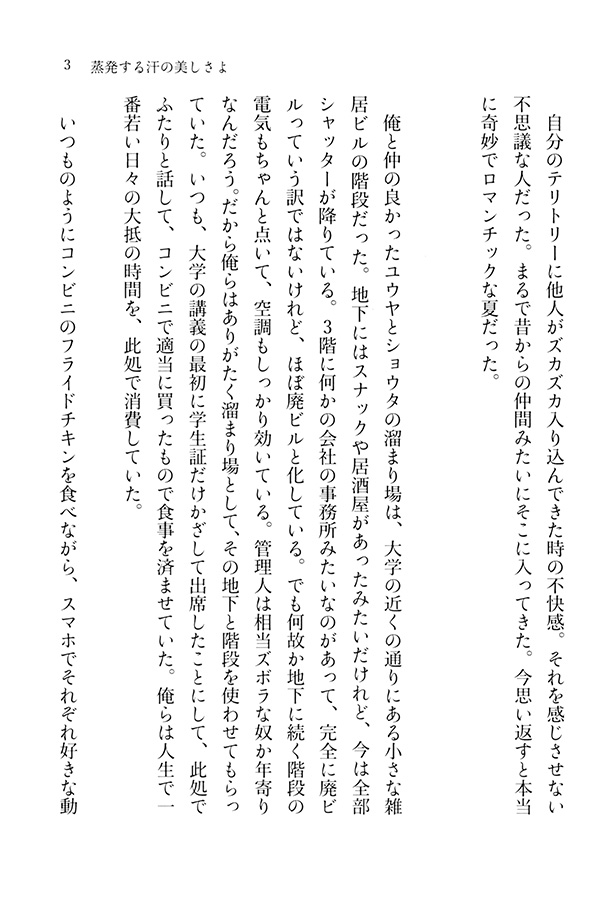 3　蒸発する汗の美しさよ
自分のテリトリーに他人がズカズカ入り込んできた時の不快感。それを感じさせない
不思議な人だった。まるで昔からの仲間みたいにそこに入ってきた。今思い返すと本当
に奇妙でロマンチックな夏だった。
俺と仲の良かったユウヤとショウタの溜まり場は、大学の近くの通りにある小さな雑
居ビルの階段だった。地下にはスナックや居酒屋があったみたいだけれど、今は全部
シャッターが降りている。3階に何かの会社の事務所みたいなのがあって、完全に廃ビ
ルっていう訳ではないけれど、ほぼ廃ビルと化している。でも何故か地下に続く階段の
電気もちゃんと点いて、空調もしっかり効いている。管理人は相当ズボラな奴か年寄り
なんだろう。だから俺らはありがたく溜まり場として、その地下と階段を使わせてもらっ
ていた。いつも、大学の講義の最初に学生証だけかざして出席したことにして、此処で
ふたりと話して、コンビニで適当に買ったもので食事を済ませていた。俺らは人生で一
番若い日々の大抵の時間を、此処で消費していた。
いつものようにコンビニのフライドチキンを食べながら、スマホでそれぞれ好きな動